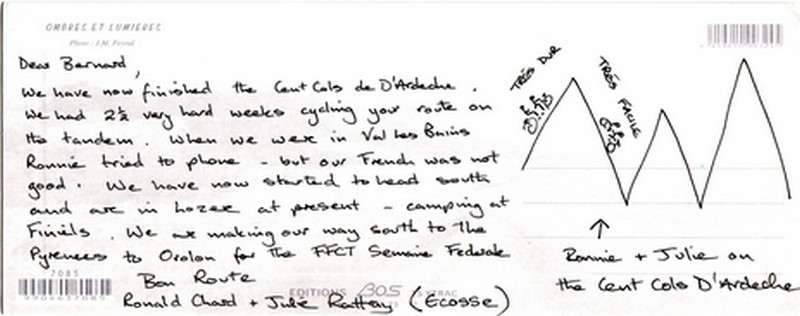 OMBRES ET LUMIERES
Photo : J.M. Peyral
Dear Bernard,
We have now finished the Cent Cols de D'Ardeche .
We had 2½ very hard weeks cycling your route on
the tandem . When we were in Val Les Bains
Ronnie tried to phone - but our French was not
good . We have now started to head south
and are in Lozer at present - camping at
Finiels . We are making our way south to the
Pyrenees to Orolon for the FFCT Semaine Federale
Bon Route
Ronald Chard + Julie Rattray (Ecosse)
7085
EDITIONS BOS
TRÉS DUR
TRÉS FACILE
Ronnie + Julie on
the Cent Cols D'Ardeche